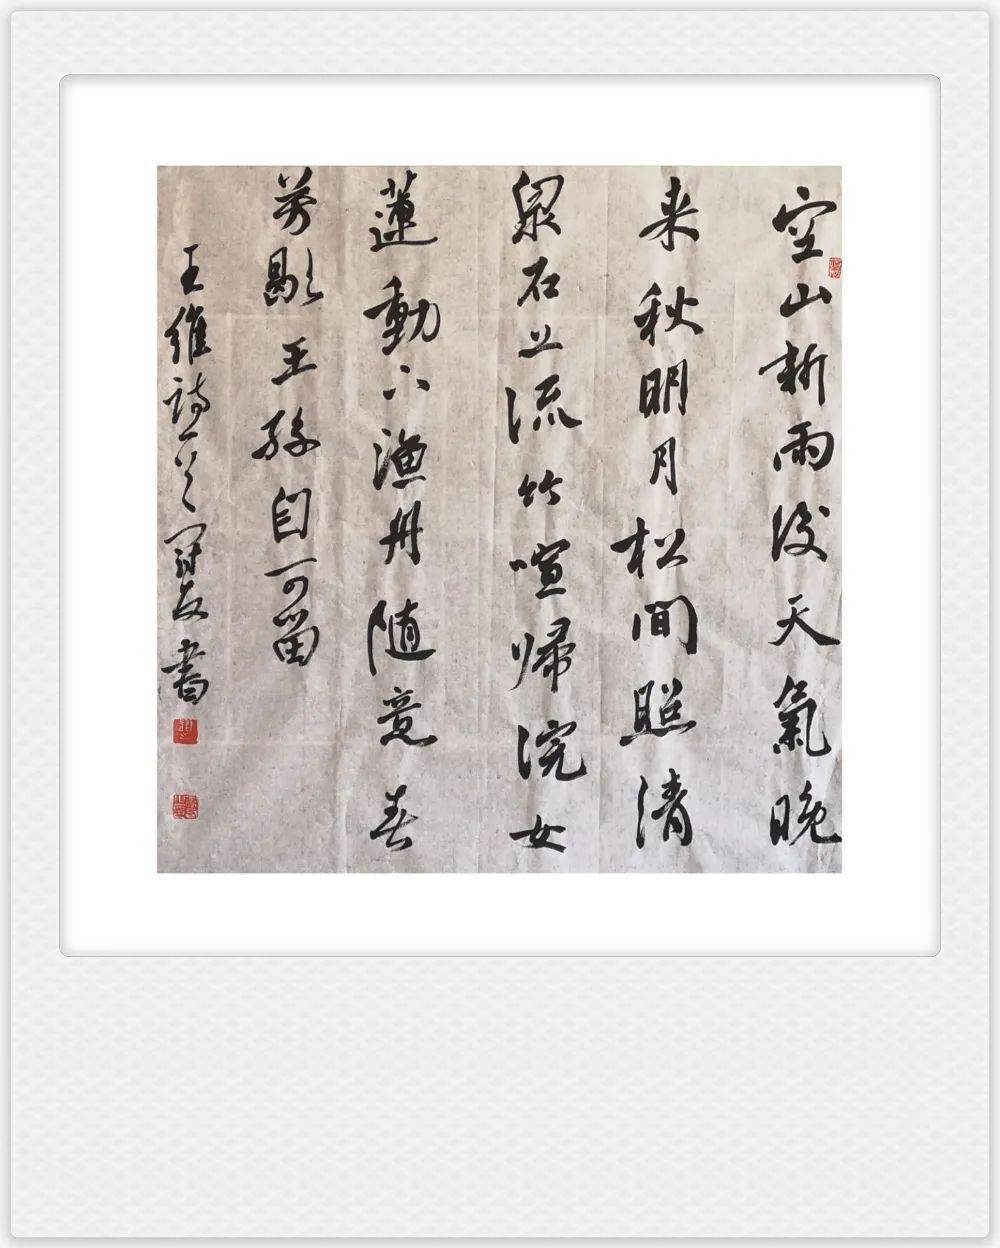 空山新雨後天氣晚
来秋明月松間照清
泉石上流竹喧帰浣女
蓮動下漁舟随意春
芳歇王孫自可留
王維詩一首書